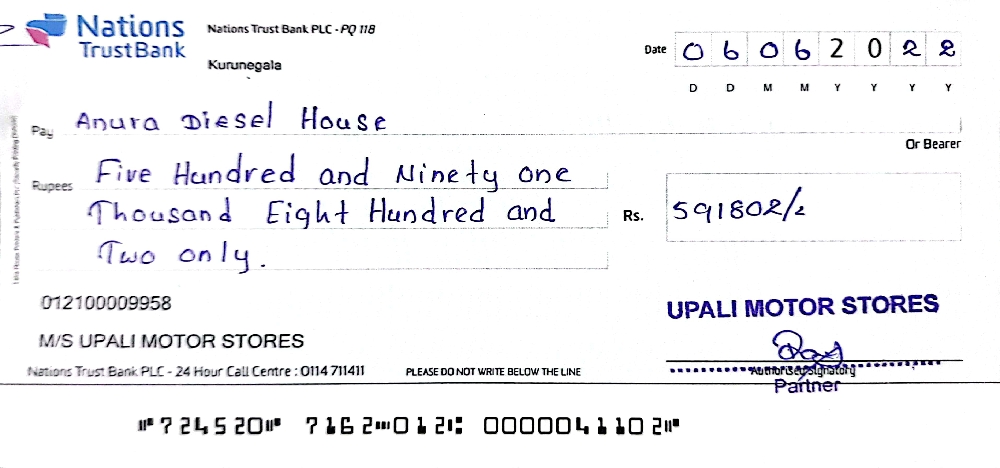 Nations
TrustBank
Nations Trust Bank PLC - PQ 118
Kurunegala
Date 0 6 0 6 2 0 2 2
D D M M Y Y Y Y
Pay Anura Diesel House
Or Bearer
Rupees Five Hundred and Ninety one
Thousand Eight Hundred and
Two only.
Rs. 591802/=
012100009958
M/S UPALI MOTOR STORES
UPALI MOTOR STORES
Authorised Signatory
Partner
Nations Trust Bank PLC - 24 Hour Call Centre : 0114 711411
PLEASE DO NOT WRITE BELOW THE LINE
⑈724520⑈ 7162⑉012⑆ 0000041102⑈